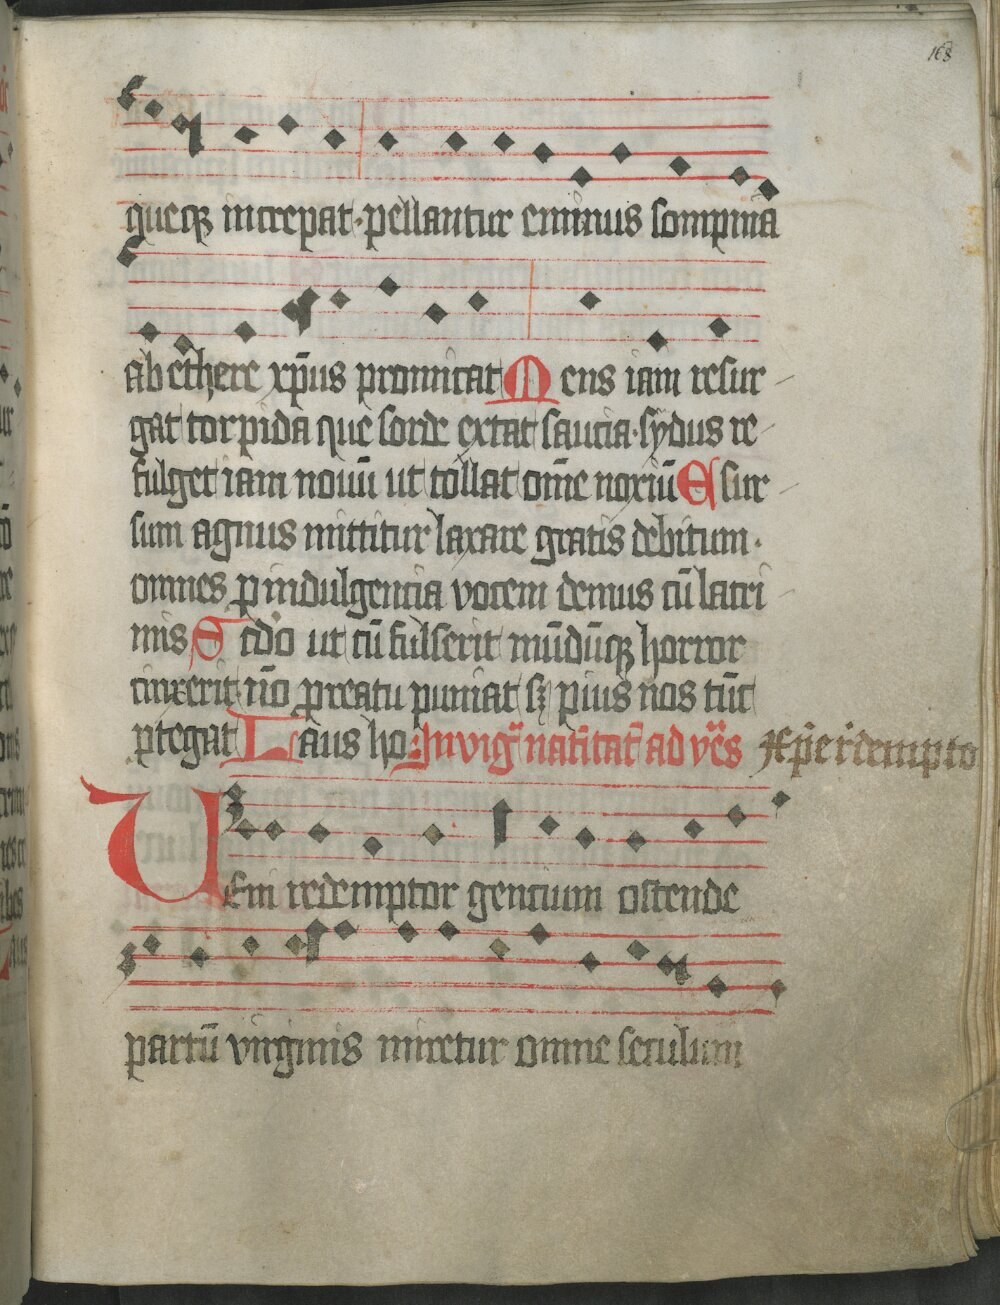 163
queqꝫ increpat · pellantur eminus sompnia
ab ethere xp̄us promicat Mens iam resur
gat torpida que sorde extat saucia · sydus re
fulget iam nouū ut tollat om̄e noxiū E sur
sum agnus mittitur laxare gratis debitum ·
omnes ꝑ indulgencia vocem demus cū lacri
mis Scd̄o ut cū fulserit mūdūqꝫ horror
cinxerit nō ꝓ reatu puniat sꝫ pius nos tūc
ꝓtegat Laus ho In vigꝭ natiītatꝭ ad vēs Xp̄e redempto
Veni redemptor gencium ostende
partū virginis miretur omne seculum